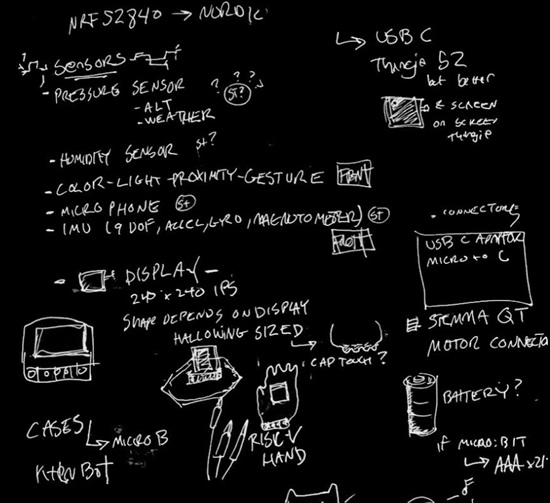 NRF52840 → NORDIC
SENSORS
- PRESSURE SENSOR
- ALT
- WEATHER
? ? ? ?
ST?
- HUMIDITY SENSOR ST?
- COLOR-LIGHT PROXIMITY-GESTURE FRONT
- MICROPHONE ST
- IMU (9 DOF, ACCEL, GYRO, MAGNETOMETER) ST
FRONT
- DISPLAY -
240 x 240 IPS
SHAPE DEPENDS ON DISPLAY
HALLOWING SIZED
CAP TOUCH?
CASES
→ MICRO B
RISK V
HAND
→ USB C
Thingie 52
but better
E SCREEN
ON SCREEN
THINGIE
- CONNECTORS
USB C
MICRO to C
STEMMA QT
MOTOR
BATTERY?
IF MICRO:BIT
→ AAA x2